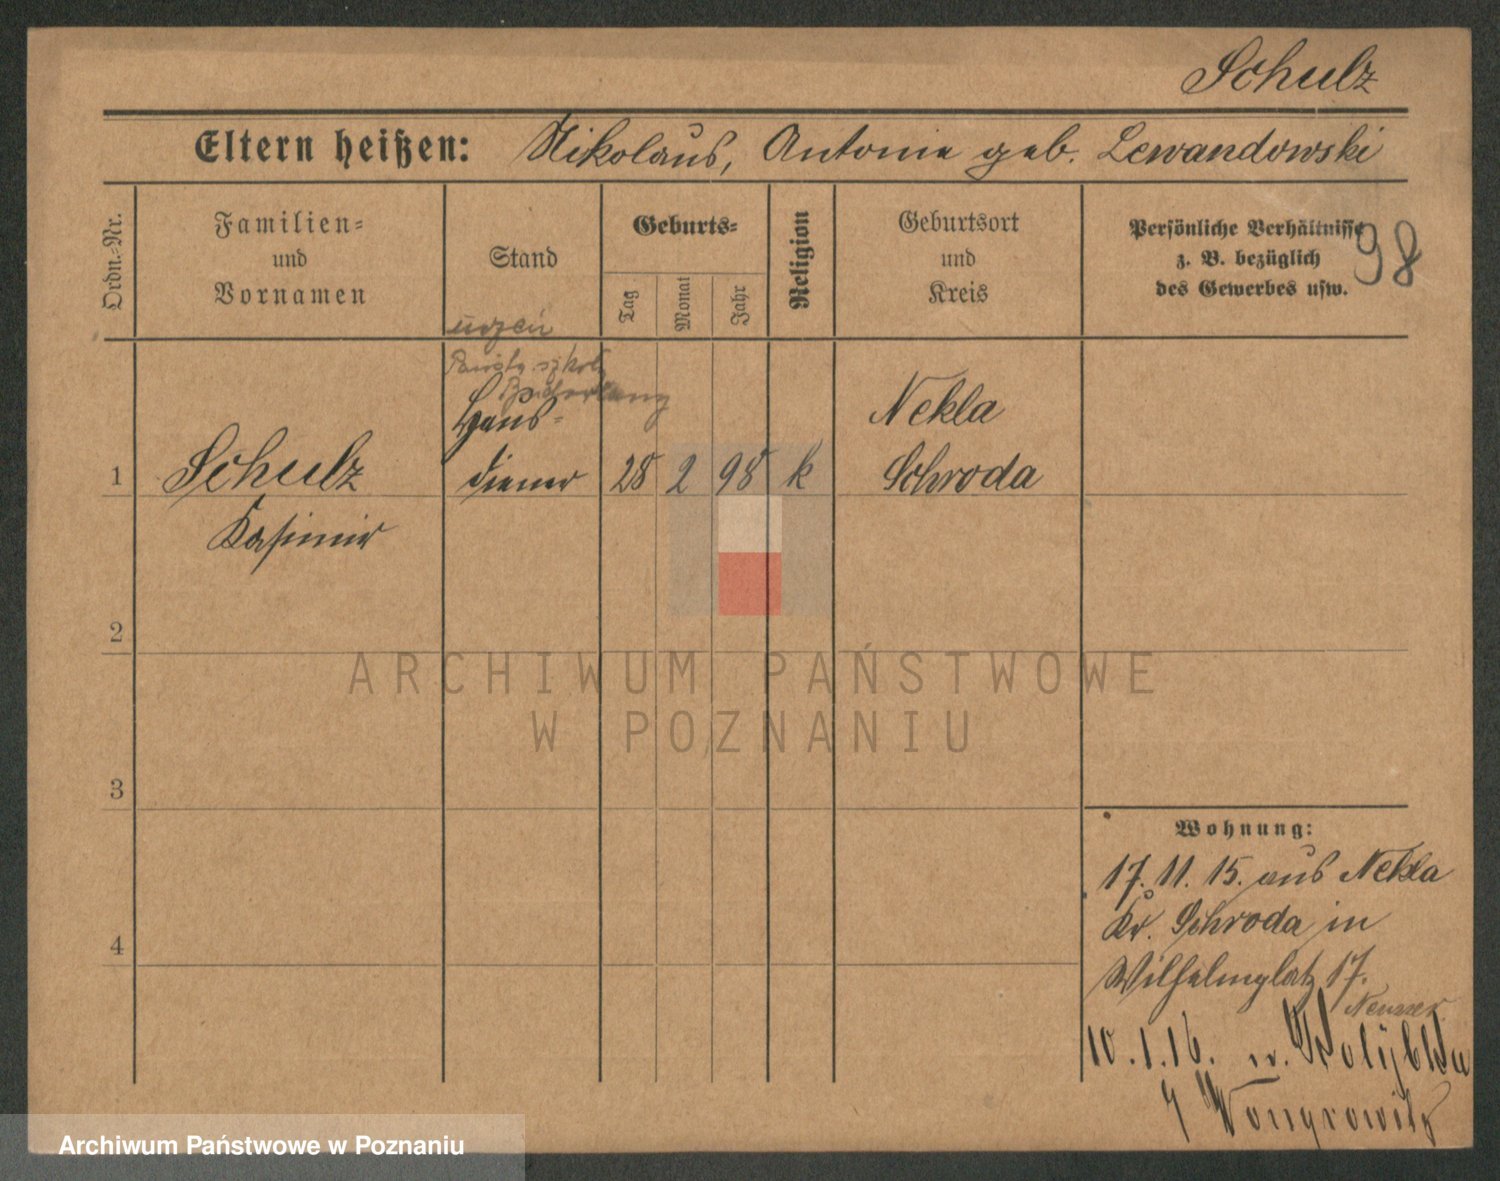 Schulz
Eltern heißen: Nikolaus, Antonie geb. Lewandowski
Ordn.-Nr.
Familien-
und
Vornamen
Stand
Geburts-
Tag
Monat
Jahr
Religion
Geburtsort
und
Kreis
Persönliche Verhältnisse
z. B. bezüglich
des Gewerbes usw.
98
uczeń
1
Schulz
Kasimir
Haus-
diener
28
2
98
k
Nekla
Schroda
2
3
4
Wohnung:
17. 11. 15. aus Nekla
Kr. Schroda in
Wilhelmplatz 17.
10. 1. 16. n.
Wongrowitz
ARCHIWUM PAŃSTWOWE
W POZNANIU
Archiwum Państwowe w Poznaniu